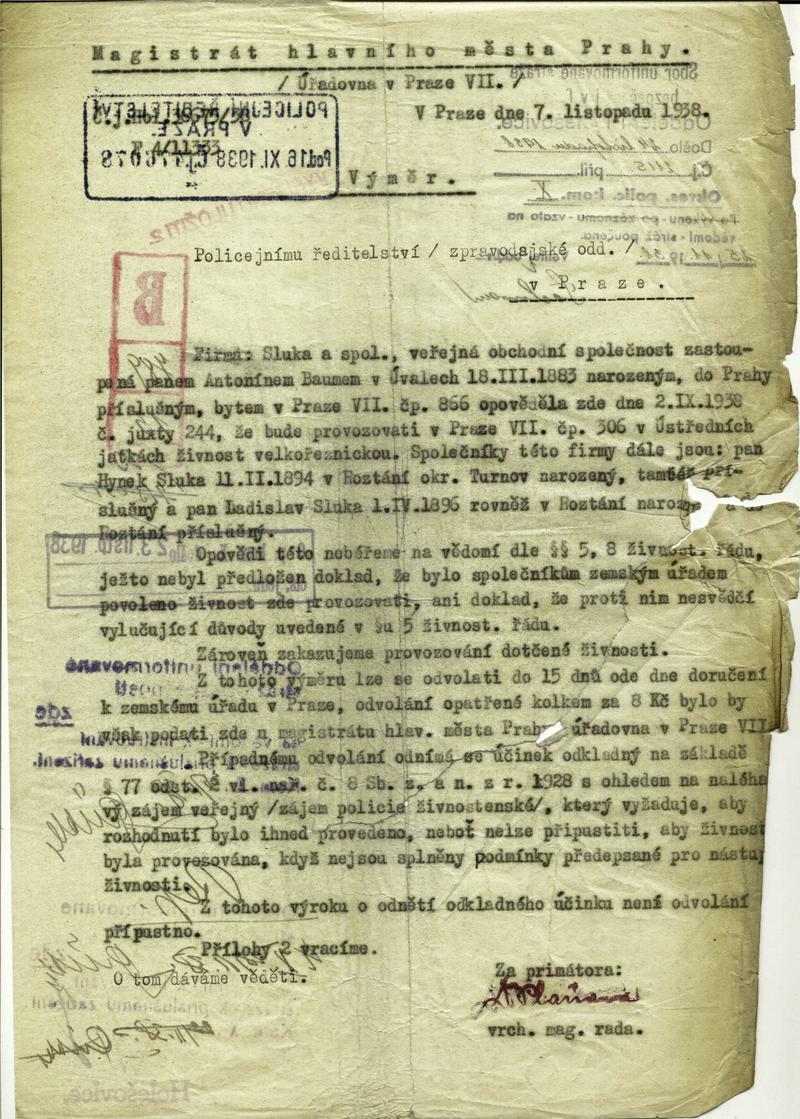 Magistrát hlavního města Prahy.
/ Úřadovna v Praze VII. /
V Praze dne 7. listopadu 1938.
POLICEJNÍ ŘEDITELSTVÍ
V PRAZE.
16. XI. 1938
Došlo
příl.
Okres. polic. kom. X
Výměr.
Policejnímu ředitelství / zpravodajské odd. /
v Praze.
B
Firma: Sluka a spol., veřejná obchodní společnost zastou-
pená panem Antonínem Baumem v Úvalech 18.III.1883 narozeným, do Prahy
příslušným, bytem v Praze VII. čp. 866 opověděla zde dne 2.IX.1938
č. juxty 244, že bude provozovati v Praze VII. čp. 306 v Ústředních
jatkách živnost velkořeznickou. Společníky této firmy dále jsou: pan
Hynek Sluka 11.II.1894 v Roztání okr. Turnov narozený, tamtéž pří-
slušný a pan Ladislav Sluka 1.IV.1896 rovněž v Roztání
Roztání příslušný.
Opovědi této nebéřeme na vědomí dle §§ 5, 8 živnost. řádu,
ježto nebyl předložen doklad, že bylo společníkům zemským úřadem
povoleno živnost zde provozovati, ani doklad, že proti nim nesvědčí
vylučující důvody uvedené v §u 5 živnost. řádu.
Zároveň zakazujeme provozování dotčené živnosti.
Z tohoto výměru lze se odvolati do 15 dnů ode dne doručení
k zemskému úřadu v Praze, odvolání opatřené kolkem za 8 Kč bylo by
však podati zde u magistrátu hlav. města Prahy úřadovna v Praze VII
Případnému odvolání odnímá se účinek odkladný na základě
§ 77 odst. 2 vl. nař. č. 8 Sb. z. a n. z r. 1928 s ohledem na naléha
vý zájem veřejný /zájem policie živnostenské/, který vyžaduje, aby
rozhodnutí bylo ihned provedeno, neboť nelze připustiti, aby živnost
byla provozována, když nejsou splněny podmínky předepsané pro nástup
živnosti.
Z tohoto výroku o odnětí odkladného účinku není odvolání
přípustno.
Přílohy 2 vracíme.
O tom dáváme věděti.
Za primátora:
vrch. mag. rada.
Holešovice.